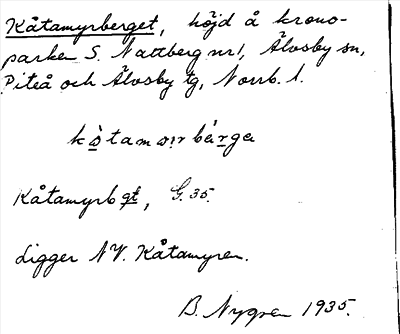 Kåtamyrberget, höjd å krono-
parken S. Nattberg nr1, Älvsby sn,
Piteå och Älvsby tg, Norrb. l.
Kåtamyrbgt, G. 35.
Ligger NV. Kåtamyren.
B. Nygren 1935.